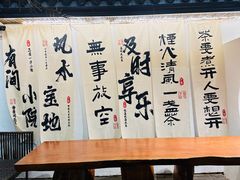 茶要煮开人要想开
烟火清風一盏茶
及时享乐
無事放空
水宝地
有间小院